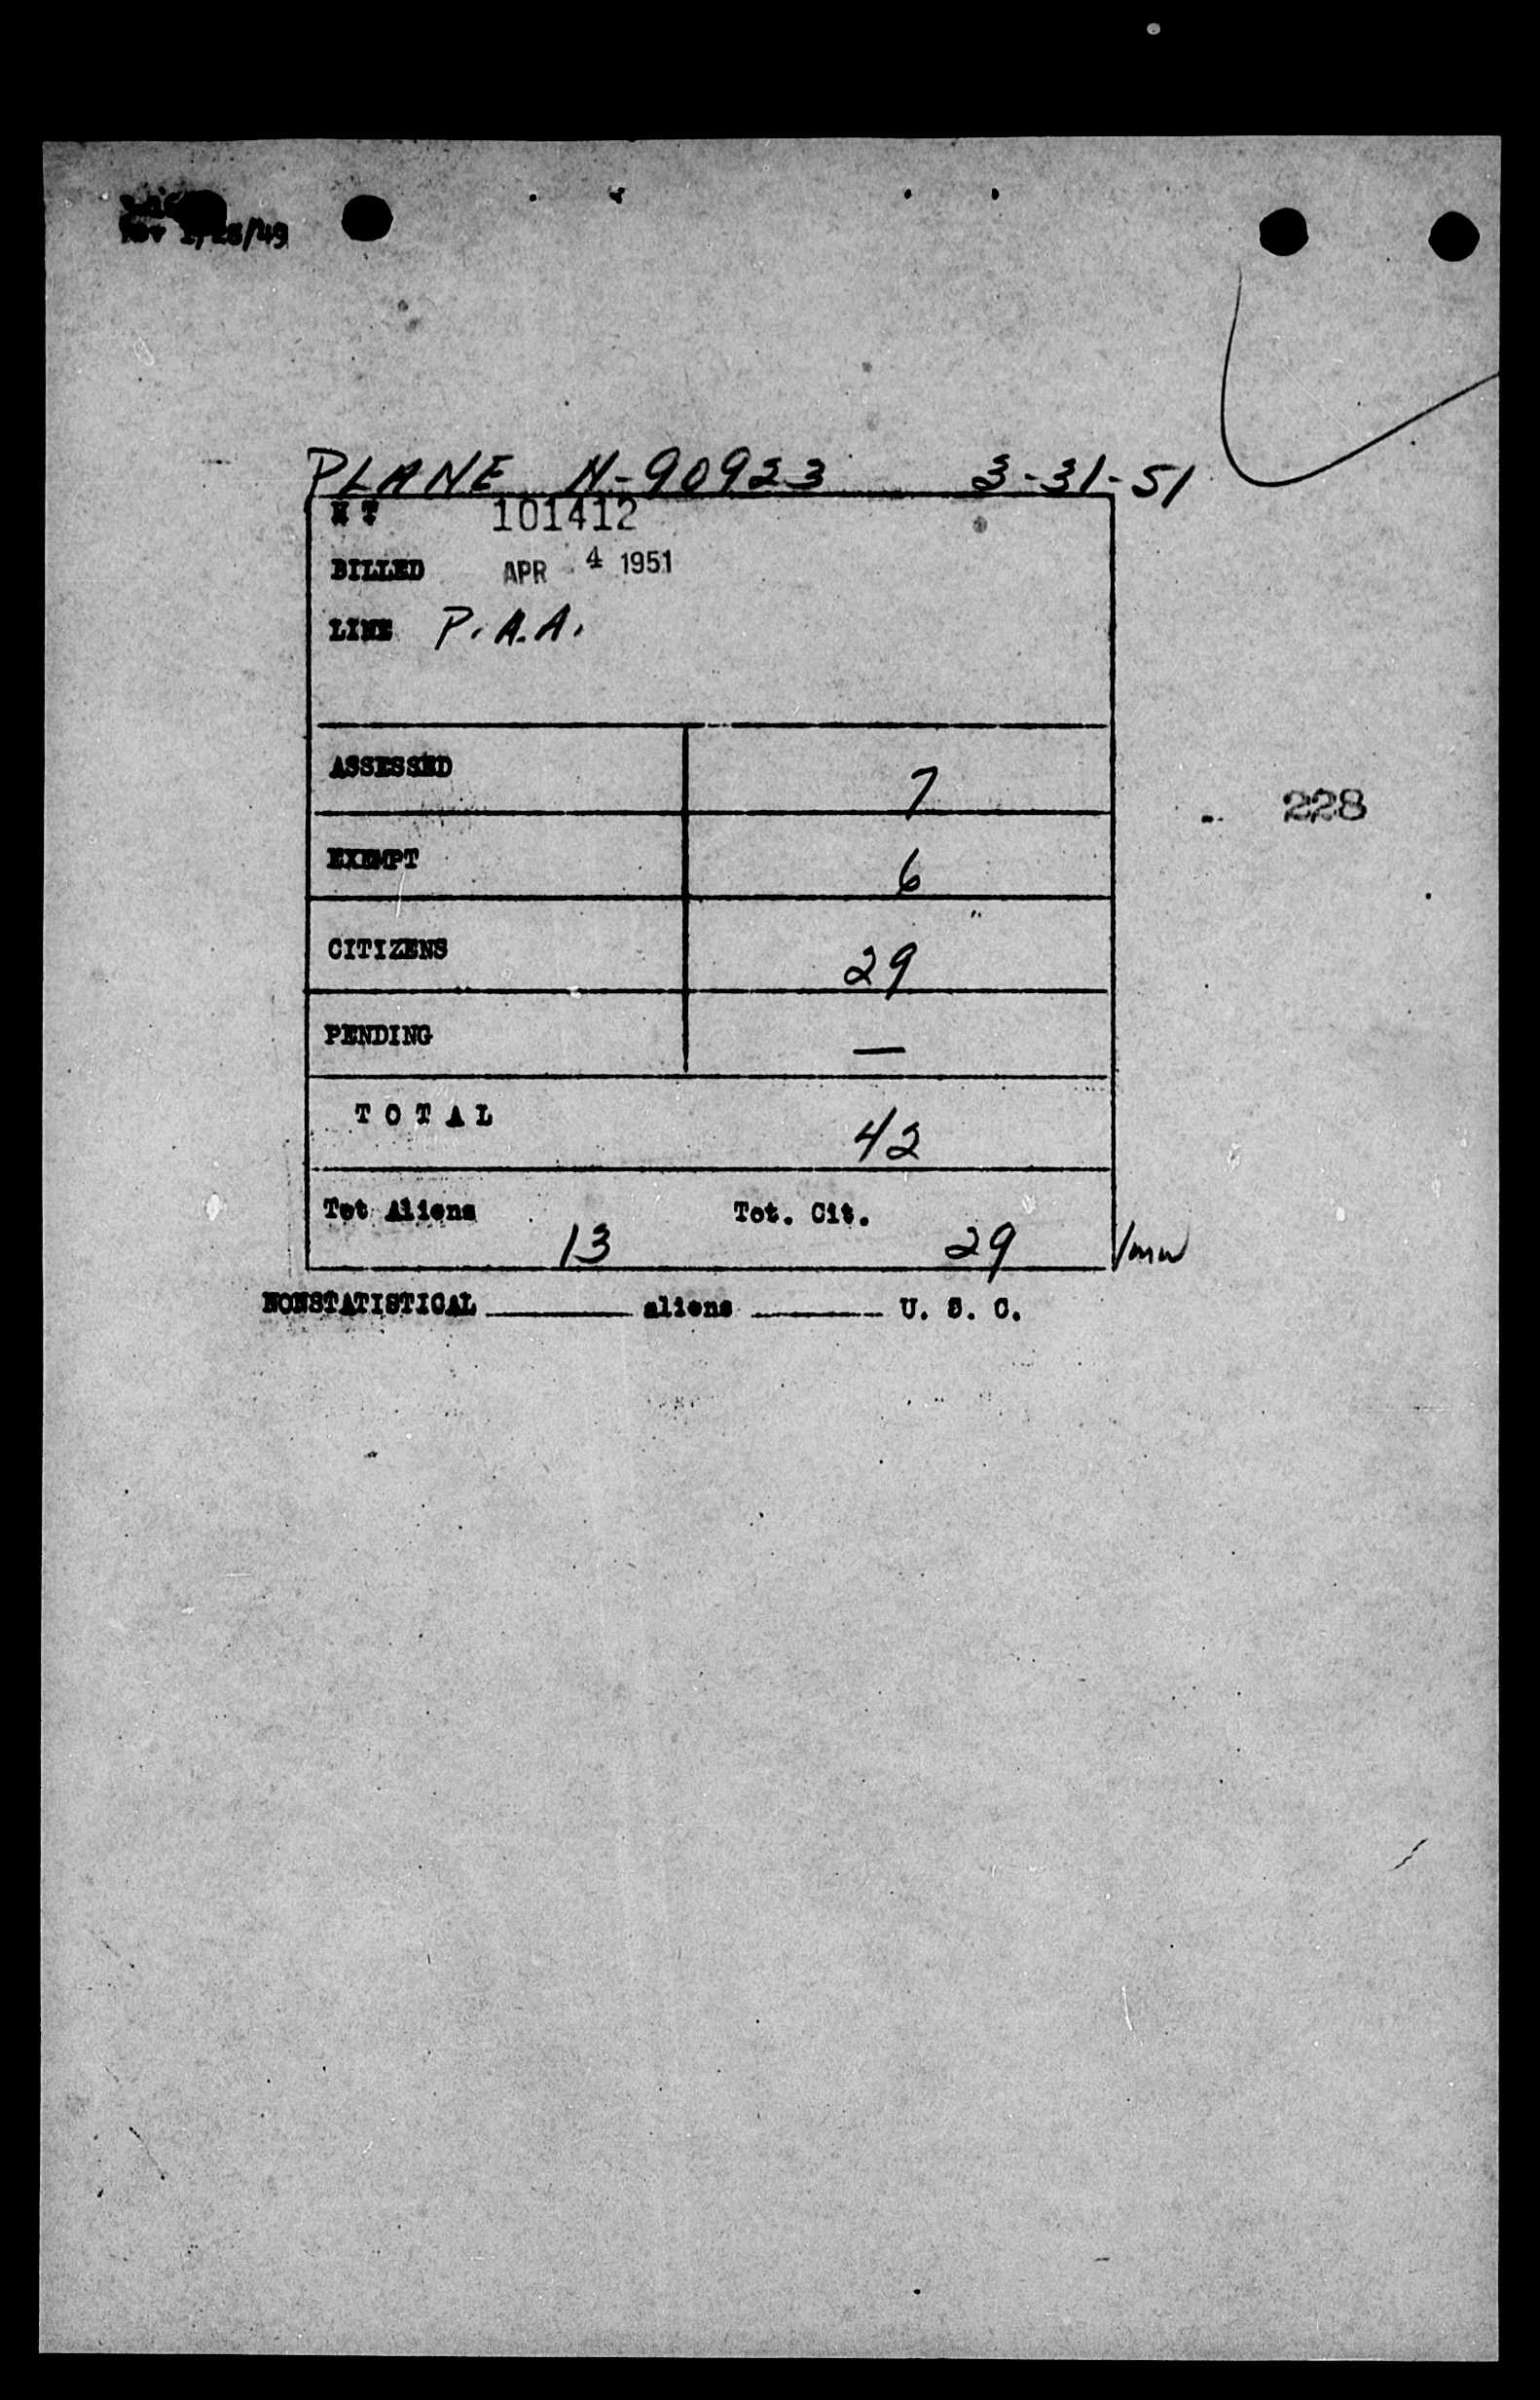 /49
PLANE N-90923 3-31-51
H T 101412
BILLED APR 4 1951
LINE P.A.A.
ASSESSED 7
228
EXEMPT 6
CITIZENS 29
PENDING —
TOTAL 42
Tot Aliens 13 Tot. Cit. 29
NONSTATISTICAL ______ aliens ______ U. S. C.